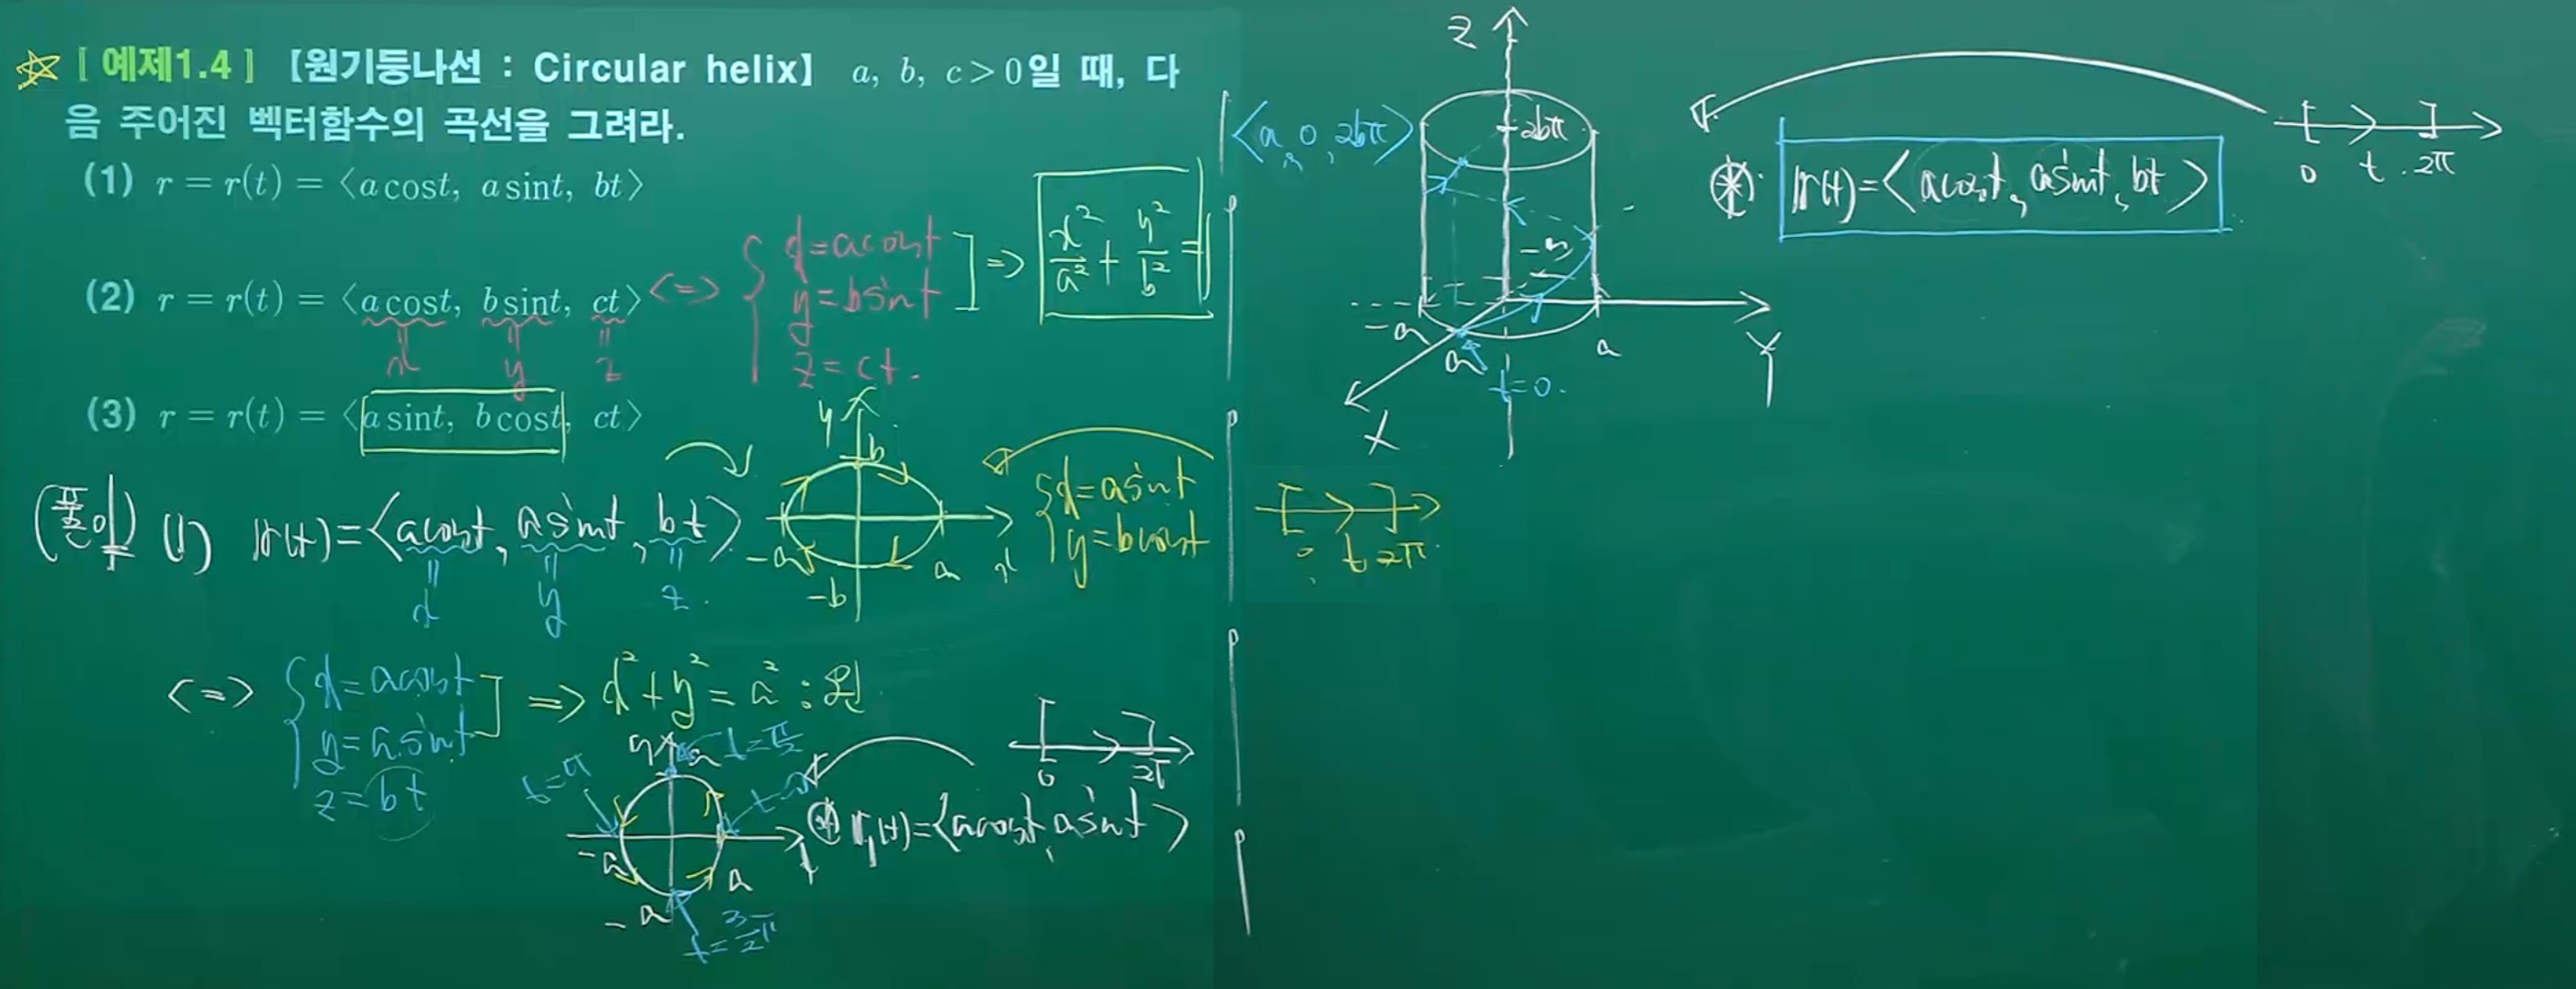 ☆ [ 예제1.4 ] 【원기둥나선 : Circular helix】 a, b, c > 0일 때, 다
음 주어진 벡터함수의 곡선을 그려라.
(1) r = r(t) = ⟨a cost, a sint, bt⟩
(2) r = r(t) = ⟨a cost, b sint, ct⟩ <=> { x = a cost
y = b sint
z = ct.
] => x²/a² + y²/b² = 1
x y z
(3) r = r(t) = ⟨a sint, b cost, ct⟩
y b -a a x -b
{ x = a sint
y = b cost
0 t 2π
(풀이) (1) r(t) = ⟨a cost, a sint, bt⟩
x y z
<=> { x = a cost
y = a sint
z = bt
] => x² + y² = a² : 원
y a t = π/2
t = π
-a a
-a t = 3/2 π
0 2π
⊛ r₁(t) = ⟨a cost, a sint⟩
Z
⟨a, 0, 2bπ⟩ 2bπ
-a
-a a a Y
t = 0.
X
⊛ r(t) = ⟨a cost, a sint, bt⟩
0 t 2π